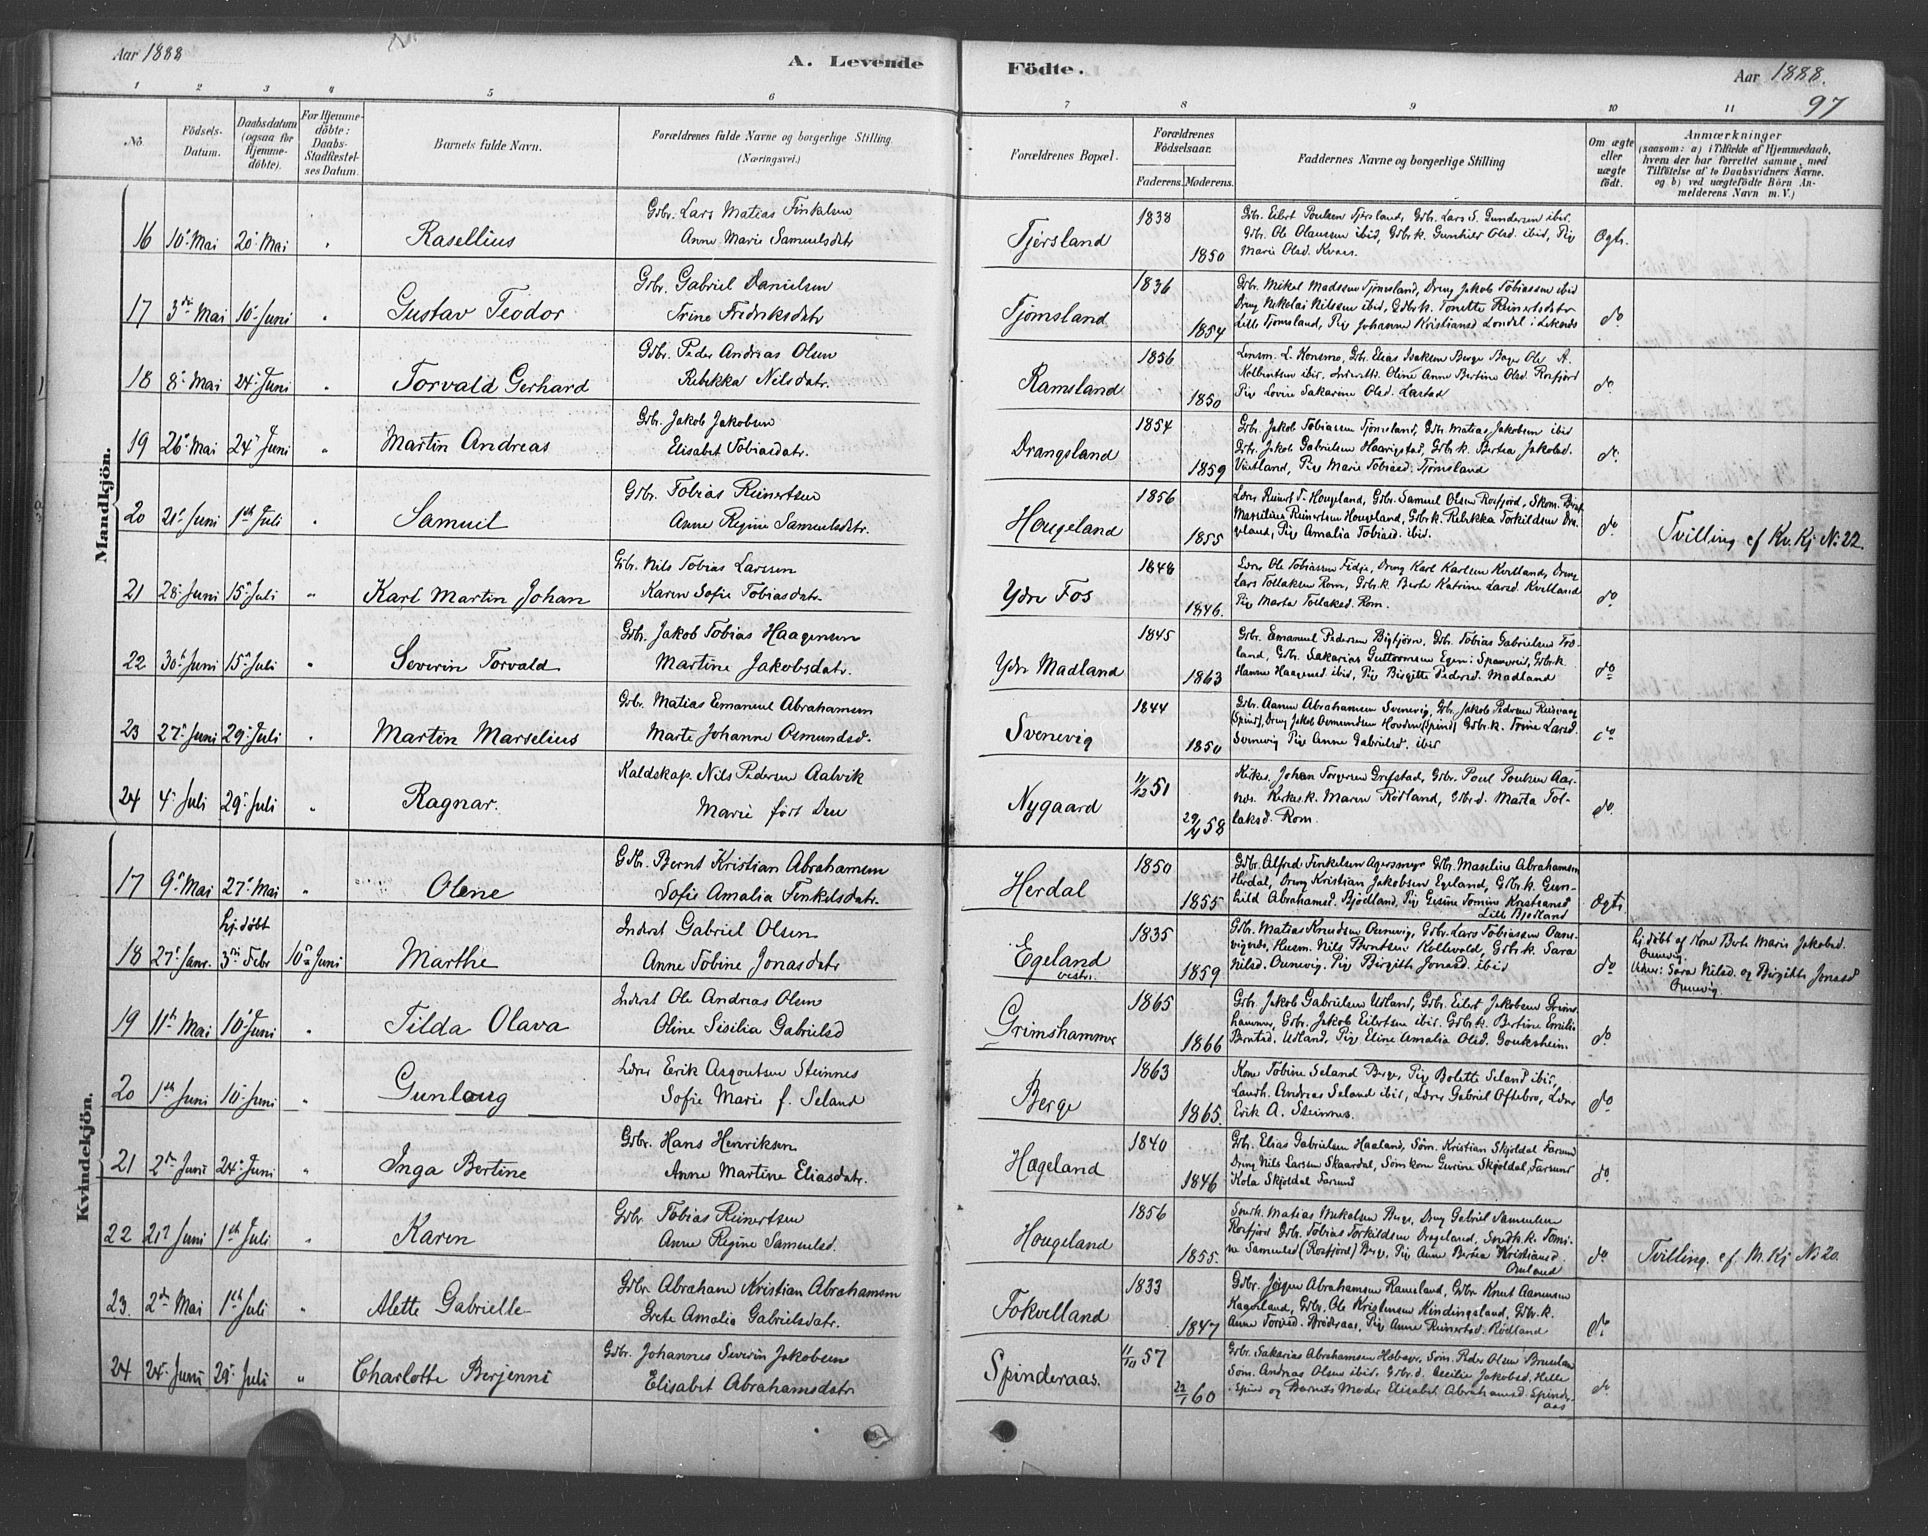 Aar 1888
A. Levende
Födte.
Aar 1888.
97
1 2 3 4 5 6 7 8 9 10 11
No.
Födsels-
Datum.
Daabsdatum
(ogsaa for
Hjemme-
döbte).
For Hjemme-
döbte:
Daabs-
Stadfæstel-
ses Datum.
Barnets fulde Navn.
Forældrenes fulde Navne og borgerlige Stilling
(Næringsvei.)
Forældrenes Bopæl.
Forældrenes
Födselsaar.
Faderens. Moderens.
Faddernes Navne og borgerlige Stilling
Om ægte
eller
uægte
födt.
Anmærkninger
(saasom: a) i Tilfælde af Hjemmedaab,
hvem der har forrettet samme, med
Tilföielse af to Daabsvidners Navne.
og b) ved uægtefödte Börn An-
melderens Navn m. V.)
Mandkjön.
16 10de Mai 20de Mai " Rasellius
Gdbr. Lars Matias Finkelsen
Anne Marie Samuelsdatr
Tjersland 1838 1850
Gdbr. Eilert Poulsen Tjersland, Gdbr. Lars S. Gundersen ibid.
Gdbr. Ole Olaussen ibid, Gdbr.k. Gunhild Olsd. ibid, Pig
Marie Olsd. Kvaas.
Ægte.
17 3die Mai 10de Juni " Gustav Teodor
Gdbr. Gabriel Danielsen
Trine Fredriksdatr
Tjömsland 1836 1854
Gdbr. Mikel Madssen Tjömsland, Dreng Jakob Tobiassen ibid
Dreng Nikolai Nilssen ibid, Gdbr.k. Tonette Reinertsdatr
Lille Tjomsland, Pig Johanne Kristiansd Londal i Liknes
do
18 8de Mai 24de Juni " Torvald Gerhard
Gdbr. Peder Andreas Olsen
Rebekka Nilsdatr.
Ramsland 1856 1850
Lensm. L. Konsmo, Gdbr. Elias Isaksen Berge Bager Ole A.
Kolbentsen ibid, Oline Anne Bertine Olsd. Rosfjord
Pig Lovise Sakarine Olsd. Lastad
do.
19 26de Mai 24de Juni " Martin Andreas
Gdbr. Jakob Jakobsen
Elisabet Tobiasdatr.
Drangsland 1854 1859
Gdbr. Jakob Tobiassen Tjömsland, Gdbr Matias Jakobsen ibid
Gdbr. Jakob Gabrielsen Haarigstad, Gdbr.k. Bertha Jakobsd.
Vintland, Pig Marie Tobiasd. Tjömsland
do.
20 21de Juni 1ste Juli " Samuel
Gdbr. Tobias Reinertsen
Anne Regine Samuelsdatr.
Hougeland 1856 1855
Lærer Reinert T. Hougeland, Gdbr. Samuel Olsen Rosfjord, Skom.
Marselius Reinertsen Hougeland, Gdbr.k. Rebekka Torkildsen Dra-
geland, Pig Amalia Tobiasd. ibid.
do.
Tvilling cf Kv. Kj No. 22.
21 28de Juni 15de Juli " Karl Martin Johan
Gdbr. Nils Tobias Larssen
Karen Sofie Tobiasdatr.
Ydre Fos 1848 1846.
Lærer Ole Tobiassen Fidje, Dreng Karl Karlsen Kvitland, Dreng
Lars Tollaksen Rom, Gdbr.k. Berte Katrine Larsd. Kvitland
Pig Marta Tollaksd. Rom.
do
22 30de Juni 15de Juli " Severin Torvald
Gdbr. Jakob Tobias Haagensen
Martine Jakobsdatr.
Ydre Madland 1845 1863
Gdbr. Emanuel Pedersen Bigbjörn, Gdbr. Tobias Gabrielsen Tro-
land, Gdbr. Sakarias Guttormsen Egen i Spangereid, Gdbr.k.
Hanne Haagensd ibid, Pig Birgitte Pedersd. Madland
do
23 27de Juni 29de Juli " Martin Marselius
Gdbr. Matias Emanuel Abrahamsen
Marte Johanne Osmundsd.
Svenevig 1844 1850
Gdbr. Aanen Abrahamsen Svenevig, Gdbr. Jakob Pedersen Reisvaag
(Spind), Dreng Jakob Osmundsen Houden (Spind) Gdbr.k. Trine Larsd.
Svenevig Pig Anne Gabrielsd. ibid
do
24 4de Juli 29de Juli " Ragnar.
Kaldskap. Nils Pedersen Aalvik
Marie föd Den
Nygaard 11/12 51 29/4 58
Kirkes. Johan Torgersen Grefstad, Gdbr. Poul Poulsen Aar-
næs. Kirkes.k. Maren Rödland, Gdbrd. Marta Tol-
laksd. Rom.
do.
Kvindekjön.
17 9de Mai 27de Mai " Olene
Gdbr. Bernt Kristian Abrahamsen
Sofie Amalia Finkelsdatr.
Herdal 1850 1855
Gdbr. Alfred Finkelsen Agersmyr Gdbr. Maselius Abrahamsen
Herdal, Dreng Kristian Jakobsen Egeland, Gdbr.k. Gun-
hild Abrahamsd. Bjodland, Pig Gesine Tomine Kristiansd
Lille Bjodland
Ægte
18 27de Janr. hj. döbt 3die Febr 10de Juni Marthe
Inderst Gabriel Olsen
Anne Tobine Jonasdatr
Egeland vestr. 1835 1859
Gdbr. Matias Knudsen Ounevig, Gdbr. Lars Tobiassen Oune-
vig, Husm. Nils Berntsen Kollevold, Gdbr.k. Sara
Nilsd. Ounevig. Pig Birgitte Jonasd. ibid
do
hj. döbt af Kone Berte Marie Jakobsd.
Ounevig.
Vidner: Sara Nilsd. og Birgitte Jonasd
Ounevig.
19 11te Mai 10de Juni " Tilda Olava
Inderst Ole Andreas Olsen
Oline Sisilia Gabrielsd
Grimshammer 1865 1866
Gdbr. Jakob Gabrielsen Udland, Gdbr. Eilert Jakobsen Grims-
hammer, Gdbr. Jakob Eilertsen ibid. Gdbr.k. Bertine Emilie
Berntsd. Udland, Pig Eline Amalia Olsd. Gouksheim.
do
20 1ste Juni 10de Juni " Gunloug
Lærer Erik Asgoutsen Steinnes
Sofie Marie f. Seland
Berge 1863 1865.
Kone Tobine Seland Berge, Pig Bolette Seland ibid,
Landh. Andreas Seland ibid, Lærer Gabriel Oftebro, Lærer
Erik A. Steinnes.
do
21 2den Juni 24de Juni " Inga Bertine
Gdbr. Hans Henriksen
Anne Martine Eliasdatr.
Hægeland 1840 1846
Gdbr. Elias Gabrielsen Haaland, Söm. Kristian Skjoldal Farsund
Dreng Nils Larsen Skaardal, Sömkone Gurine Skjoldal, Farsund
Kola Skjoldal Farsund
do
22 21de Juni 1ste Juli " Karen
Gdbr. Tobias Reinertsen
Anne Regine Samuelsd.
Hougeland 1856 1855.
Snedk. Matias Mikalsen Berge, Dreng Gabriel Samuelsen
Rosfjord Gdbr. Tobias Torkildsen Drageland, Snedk.k. Tomi-
ne Samuelsd (Rosfjord) Berge, Pig Anne Bertea Kristiansd.
Omland
do
Tvilling. cf. M. Kj No 20.
23. 2den Mai 1ste Juli " Alette Gabrielle
Gdbr Abraham Kristian Abrahamsen
Grete Amalia Gabrielsdatr.
Fokvelland 1833 1847
Gdbr. Jörgen Abrahamsen Ramsland, Gdbr Knut Aanensen
Kaaveland, Gdbr. Ole Kristensen Kindingsland, Gdbr.k.
Anne Torvsd. Brödraas, Pig Anne Reinertsd. Rödland
do.
24 24de Juni 29de Juli " Charlotte Berjenni
Gdbr. Johannes Severin Jakobsen
Elisabet Abrahamsdatr
Spinderaas. 11/10 57 22/1 60
Gdbr. Sakarias Abrahamsen Höbager, Söm. Peder Olsen Bruseland
Söm. Andreas Olsen ibid. Gdbr.d. Cecilie Jakobsd. Helle
Spind og Barnets Moder Elisabet Abrahamsd. Spinder-
aas
do.